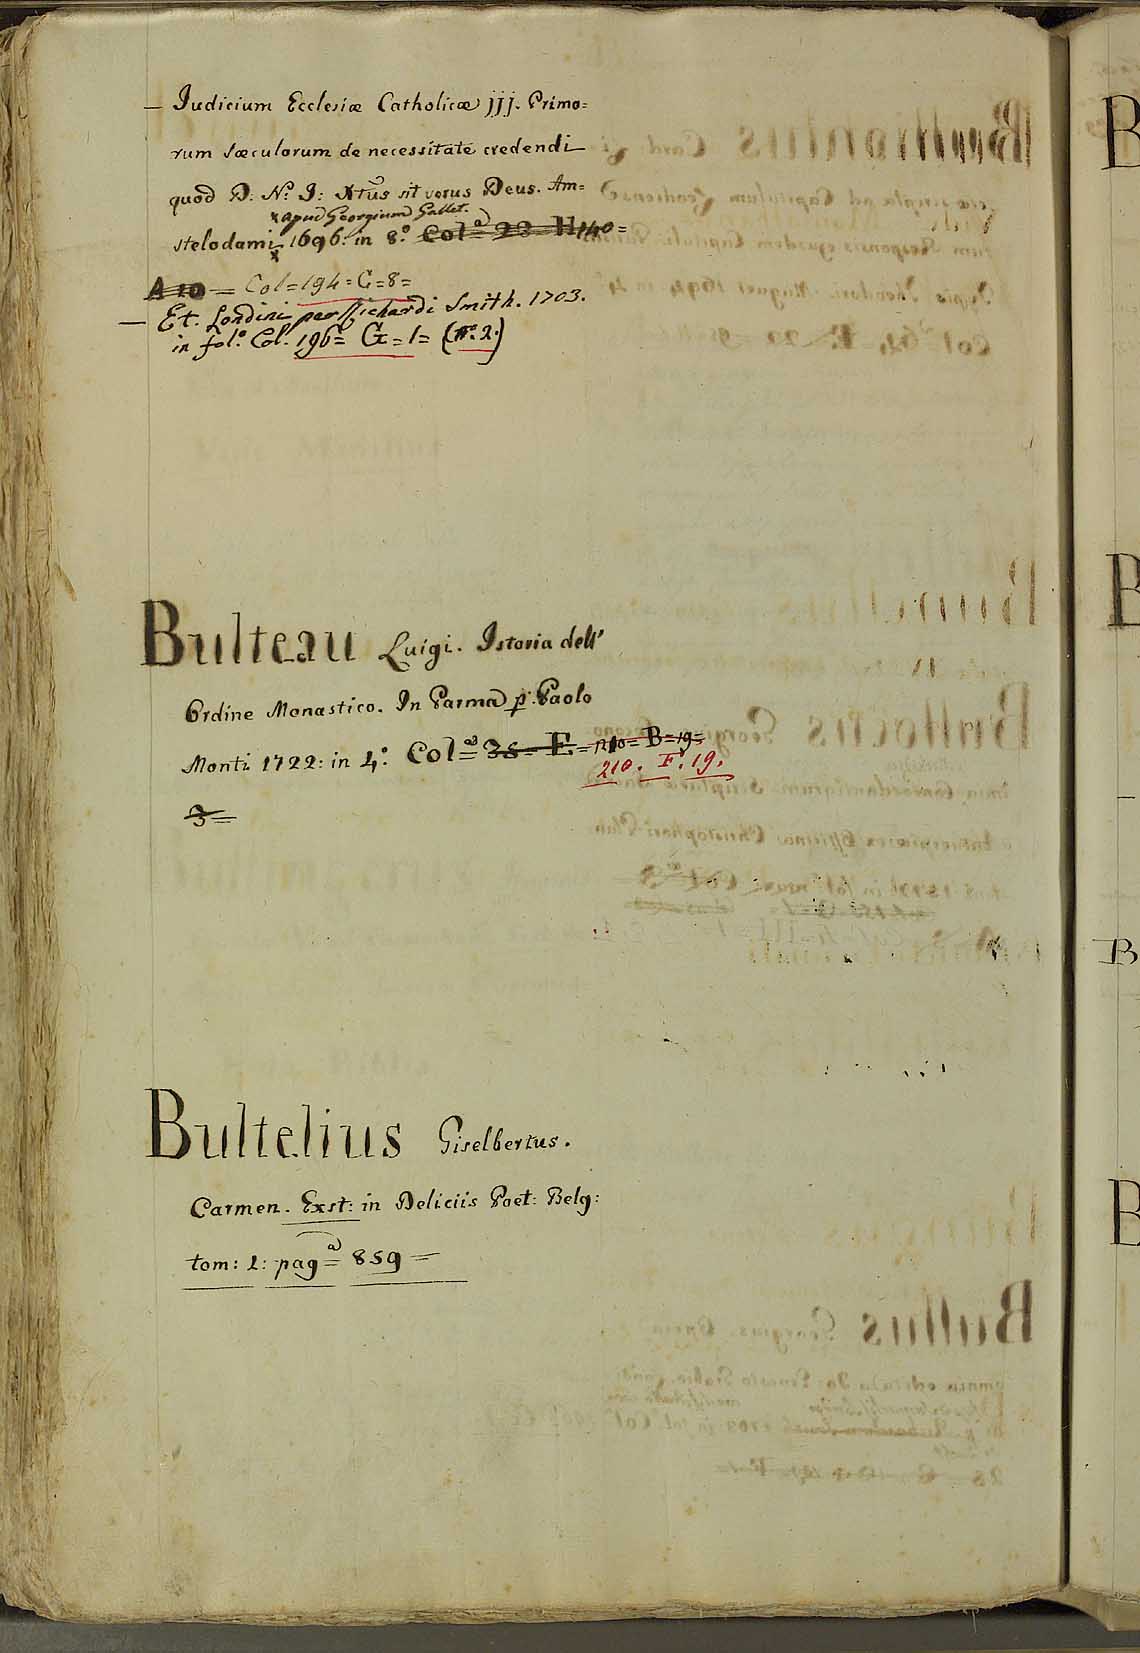 — Iudicium Ecclesiæ Catholicæ jjj. Primo=
rum sæculorum de necessitate credendi
quod D: Nr. I: Xtus sit verus Deus. Am=
x apud Georgium Gallet.
stelodami x 1696: in 8.º Col.ª 22 H 140=
A 10 = Col=194=G=8=
— Et. Londini per Richardi Smith. 1703.
in fol.º Col. 196= G=1= (n.º 2.)
Bulteau Luigi. Istoria dell'
Ordine Monastico. In Parma p. Paolo
Monti 1722: in 4.º Col.ª 38= E= B=19=
210. F. 19.
3=
Bultelius Giselbertus.
Carmen. Exst: in Deliciis Poet: Belg:
tom: 1: pag.ª 859=